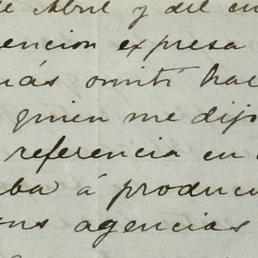 de Abril y del
encion expresa
más omití hac
quien me dijo
referencia en
ba á produci
ons agencias